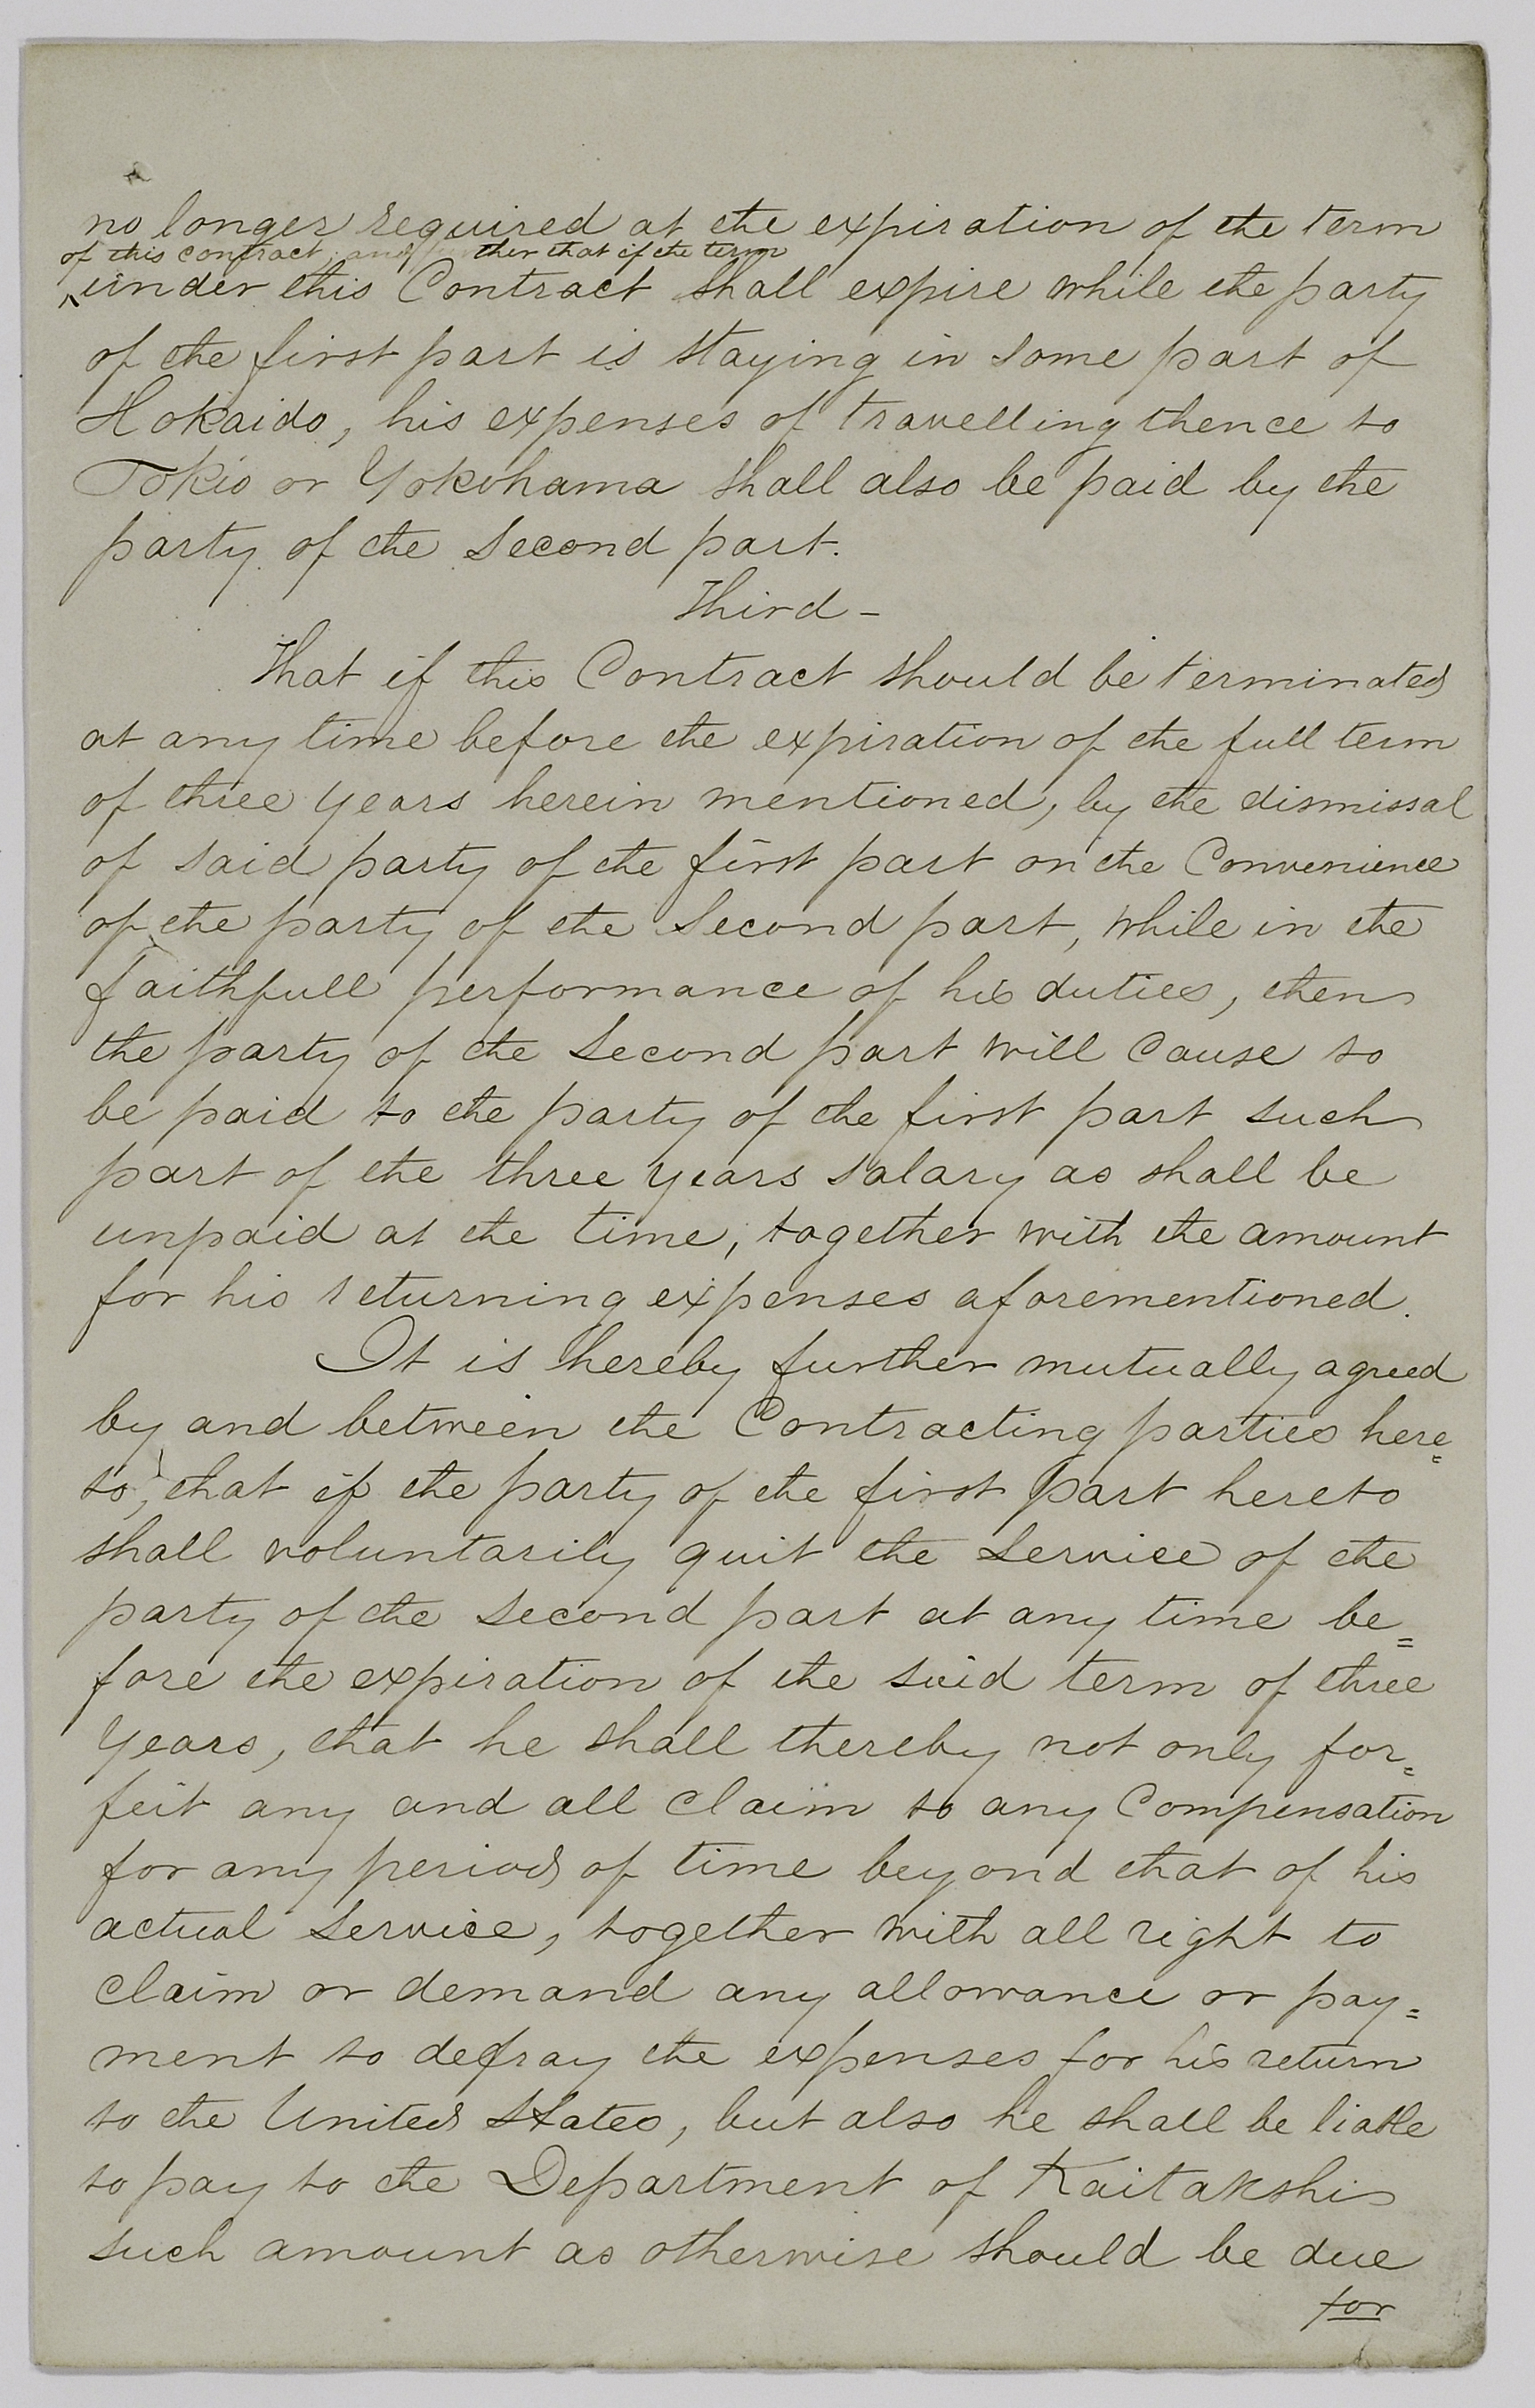 no longer required at the expiration of the term
of this contract; and further that if the term
^under this Contract shall expire while the party
of the first part is staying in some part of
Hokaido, his expenses of travelling thence to
Tokio or Yokohama shall also be paid by the
party of the Second part.
Third -
That if this Contract should be terminated
at any time before the expiration of the full term
of three years herein mentioned, by the dismissal
of said party of the first part on the Convenience
of the party of the Second part, while in the
faithfull performance of his duties, then
the party of the Second part will cause to
be paid to the party of the first part such
part of the three years salary as shall be
unpaid at the time, together with the amount
for his returning expenses aforementioned.
It is hereby further mutually agreed
by and between the Contracting parties here=
to, that if the party of the first part hereto
shall voluntarily quit the Service of the
party of the Second part at any time be=
fore the expiration of the said term of three
years, that he shall thereby not only for=
feit any and all claim to any Compensation
for any period of time beyond that of his
actual Service, together with all right to
claim or demand any allowance or pay=
ment to defray the expenses for his return
to the United States, but also he shall be liable
to pay to the Department of Kaitakshi
such amount as otherwise should be due
for